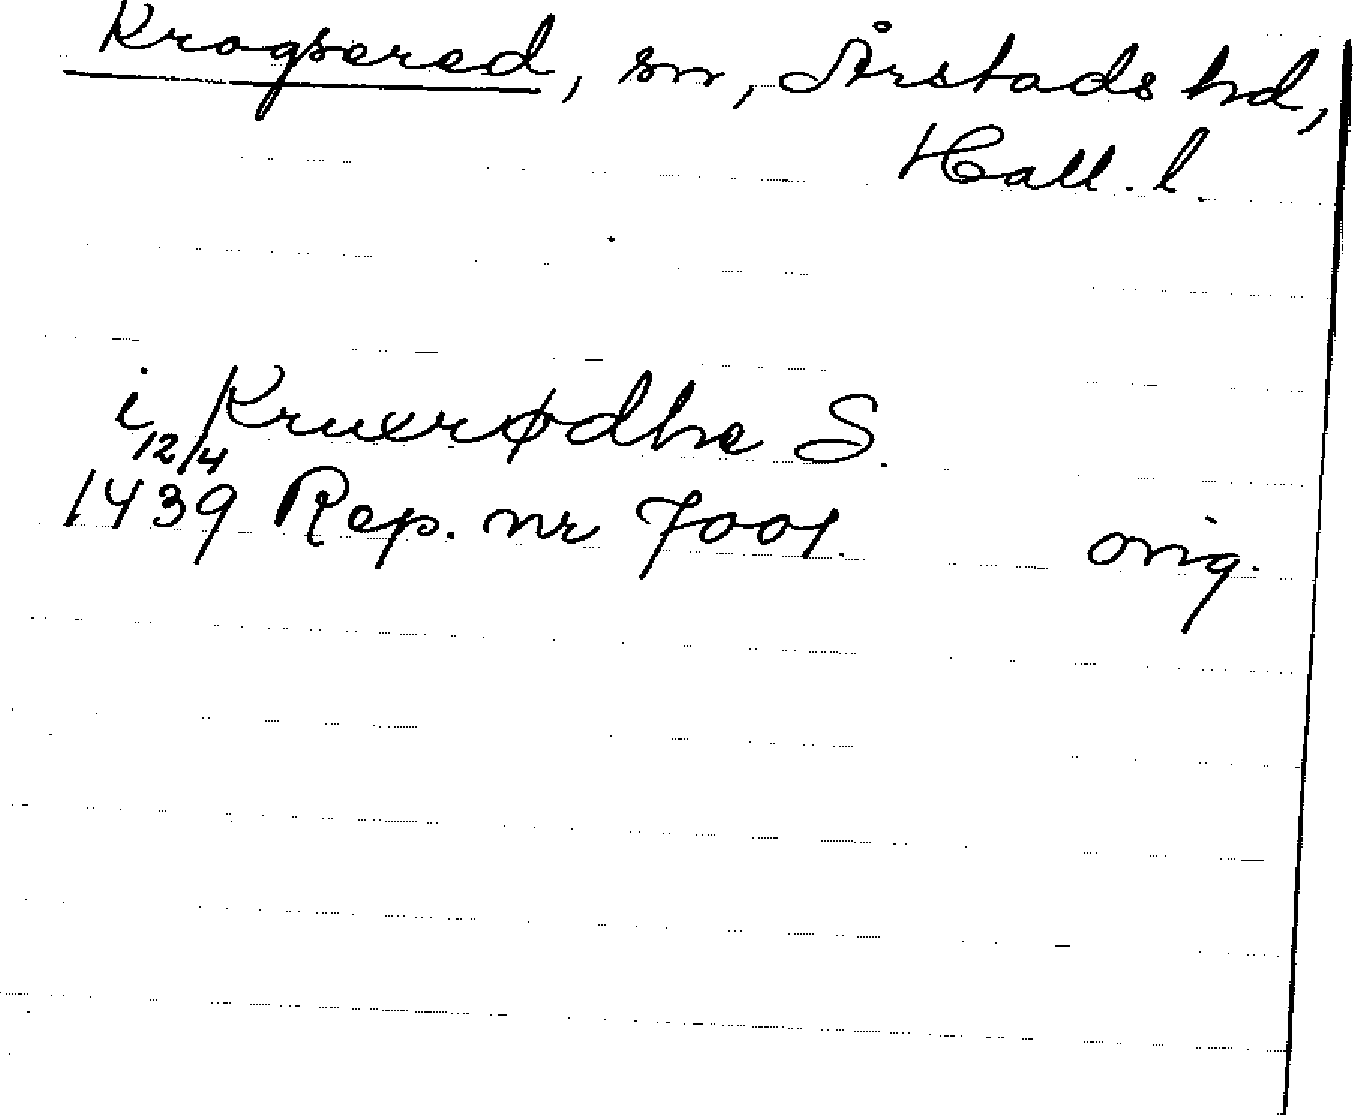 Krogsered, sn, Årstads hd,
Hall. l.
i Kruxrødhe S.
12/4
1439 Rep. nr 7001. orig.